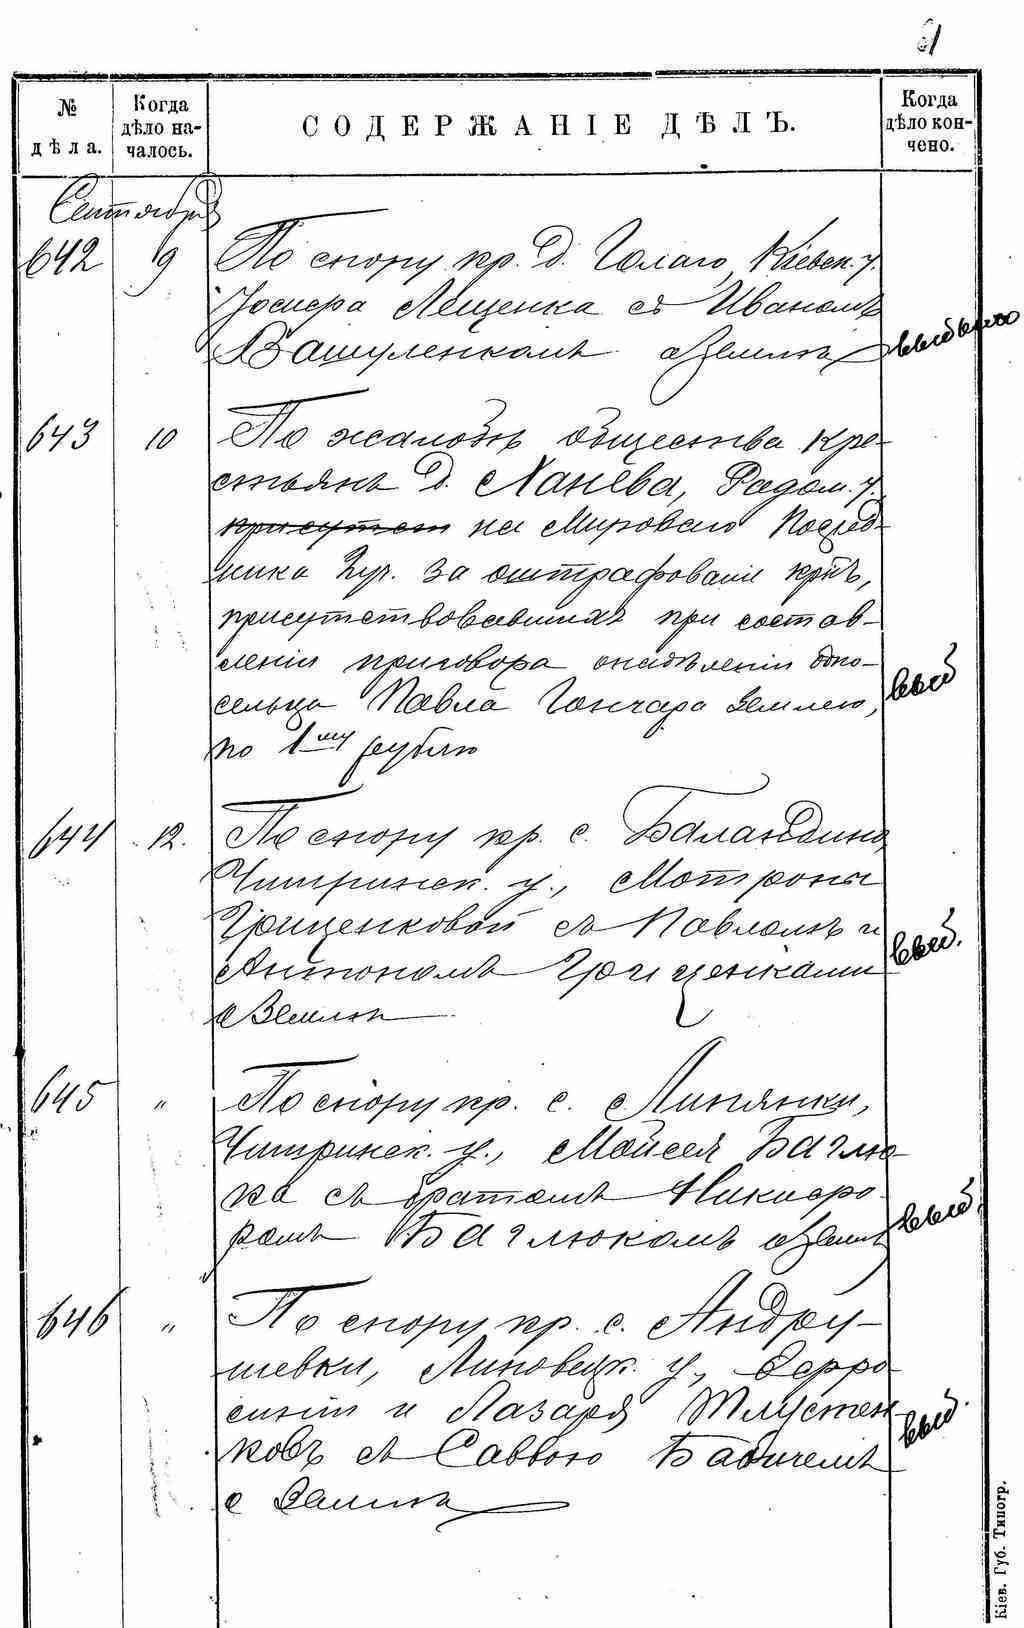 61
№ дѣла.
Когда дѣло началось.
СОДЕРЖАНІЕ ДѢЛЪ.
Когда дѣло кончено.
Сентября
642 9 По спору кр. д. Голаго, Кіевск. у.
Іосифа Лещенка съ Иваномъ
Вашуленкомъ о землѣ выбыло
643 10 По жалобѣ общества кре-
стьянъ д. Ханева, Радом. у.
присутст на Мироваго Посред-
ника 2 уч. за оштрафованіе кр-нъ,
присутствовавшихъ при состав-
леніи приговора о надѣленіи одно-
сельца Павла Гончара землею, выб
по 1му рублю
644 12. По спору кр. с. Баландина,
Чигринск. у., Мотроны
Гриценковой съ Павломъ и
Антономъ Гриценками выб.
о землѣ
645 " По спору кр. с. Липянки,
Чигринск. у., Мойсея Баглю-
ка съ братомъ Никифо-
ромъ Баглюкомъ о землѣ выб.
646 " По спору кр. с. Андру-
шевки, Липовецк. у., Ефро-
синіи и Лазаря Тлустен-
ковъ съ Саввою Бабичемъ выб.
о землѣ
Кіев. Губ. Типогр.